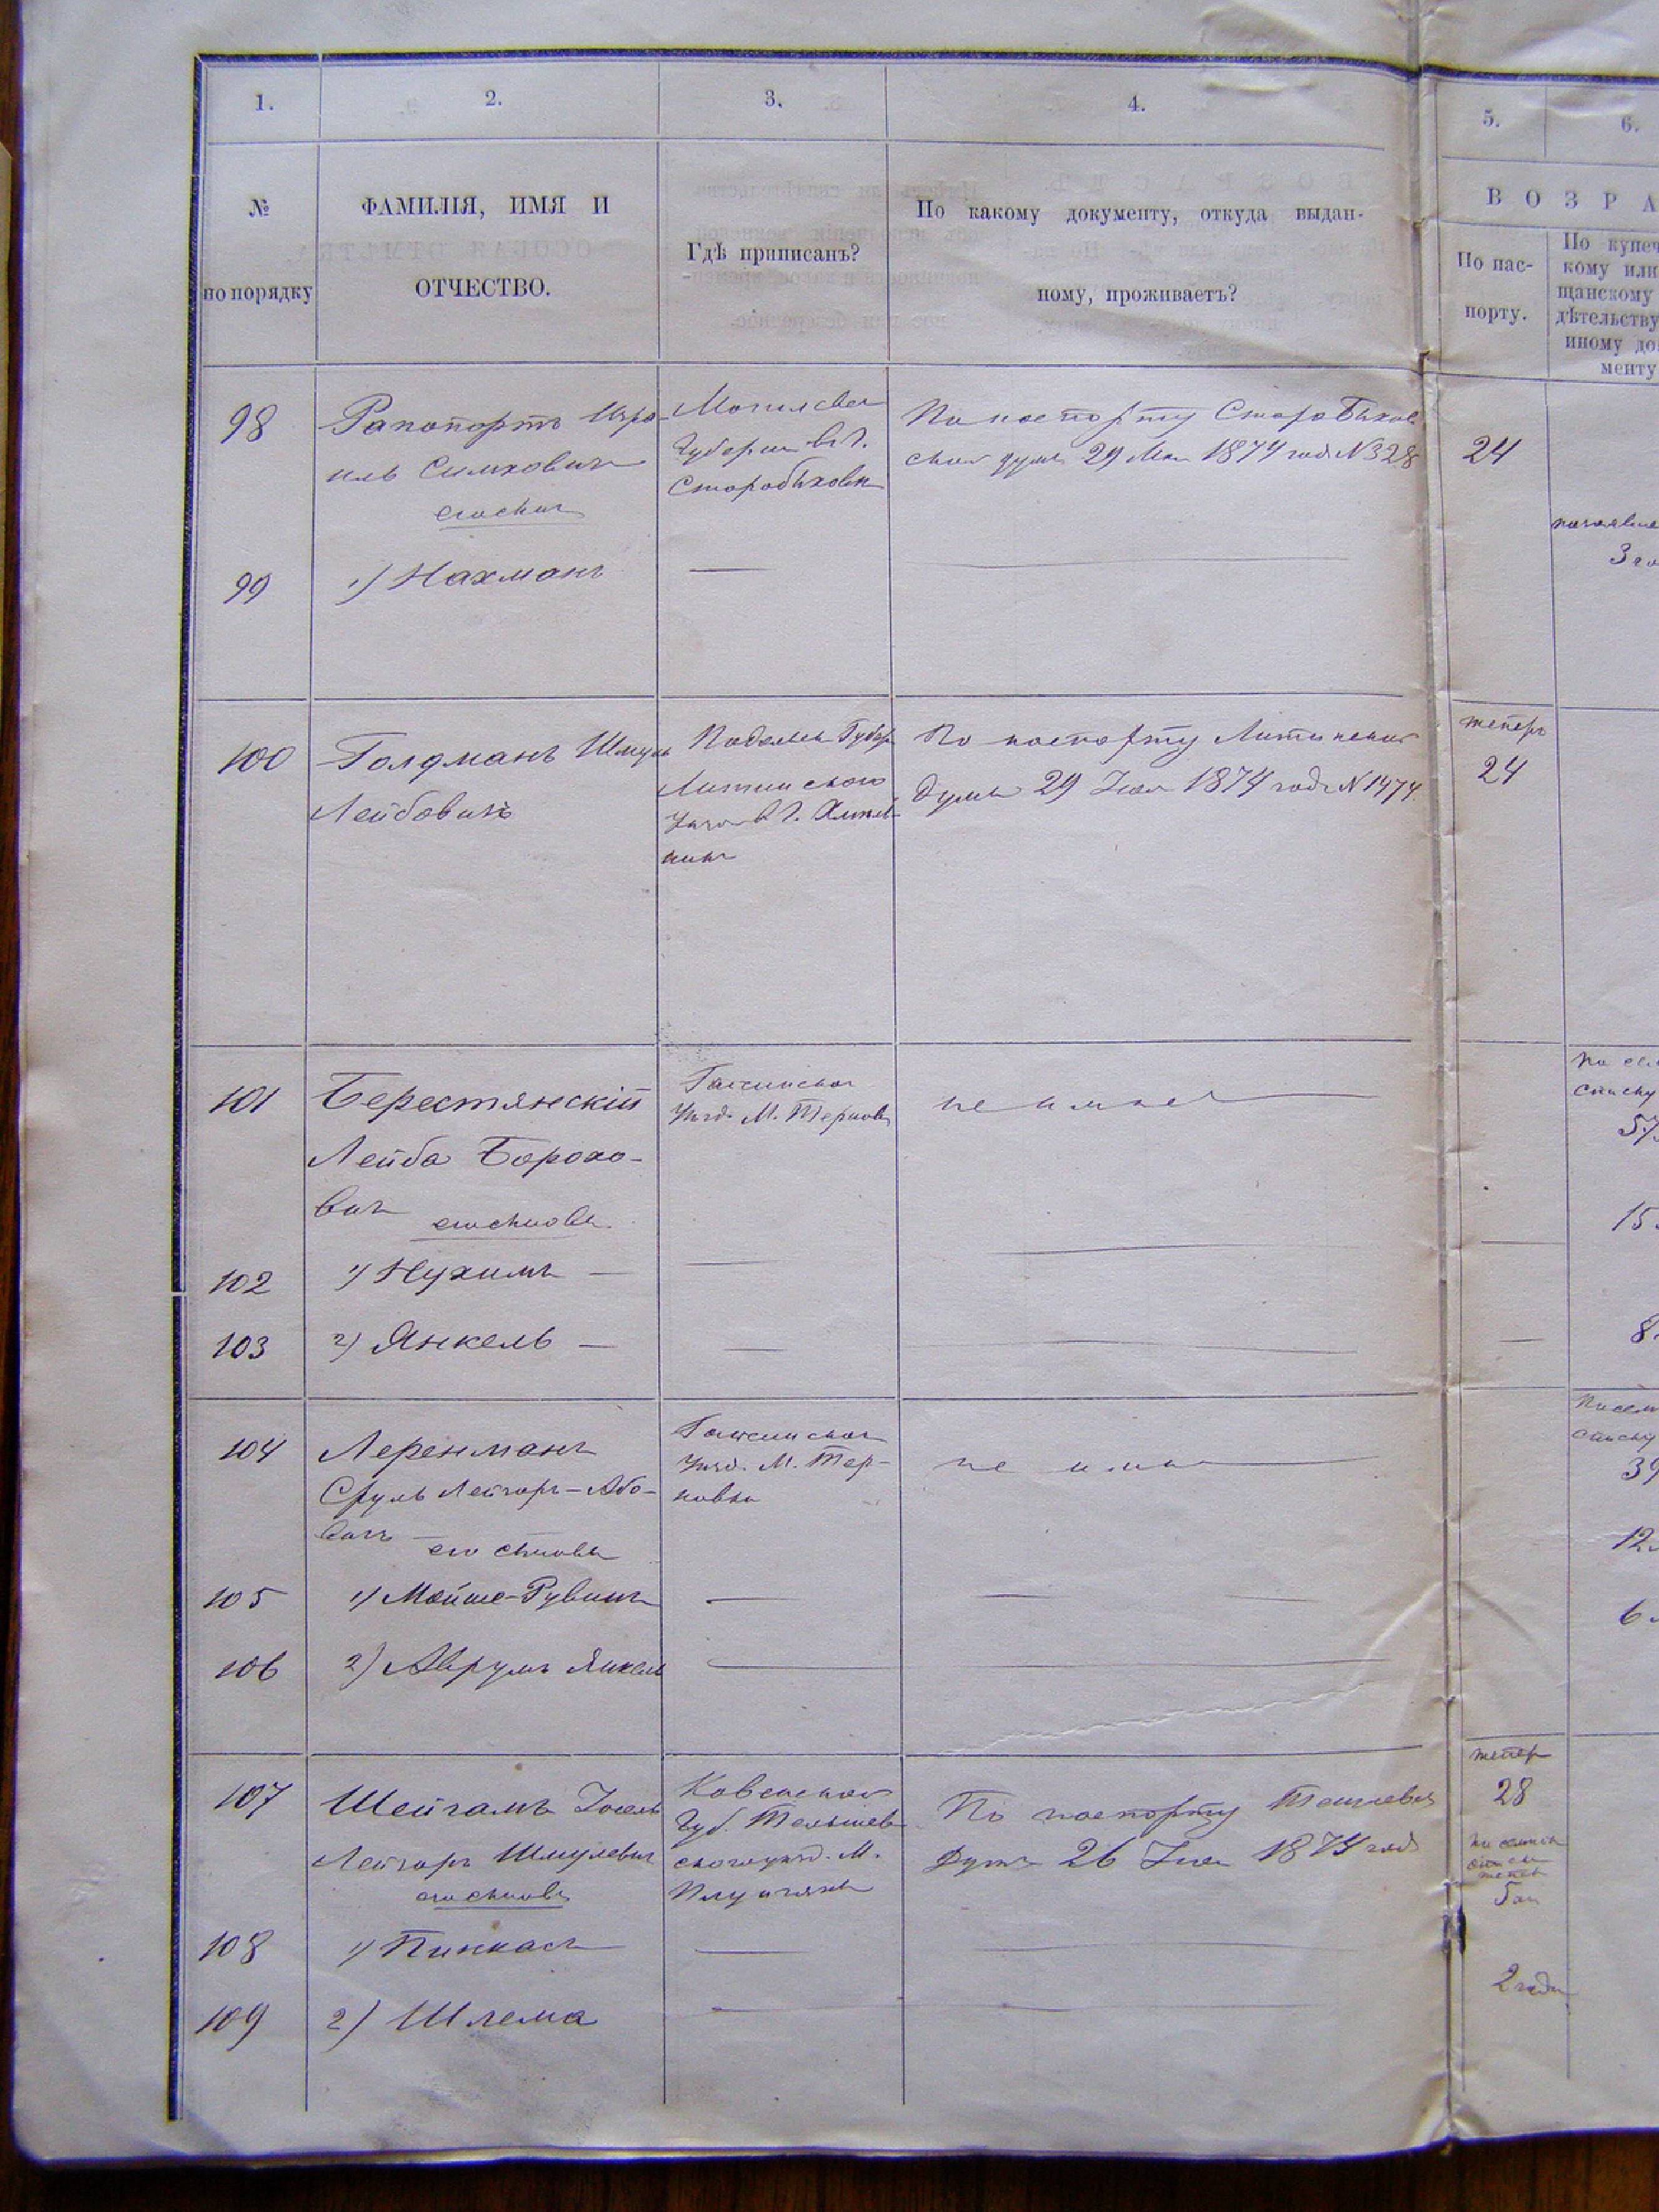 1. 2. 3. 4. 5. 6.
№ по порядку
ФАМИЛІЯ, ИМЯ И
ОТЧЕСТВО.
Гдѣ приписанъ?
По какому документу, откуда выдан-
ному, проживаетъ?
ВОЗРА
По пас-
порту.
По купеч
кому или
щанскому
дѣтельству
иному до
менту
98
Рапопортъ Изра-
иль Симховичъ
его сынъ
Могилевск
Губерніи в Г.
Старобыховѣ
По паспорту Старобыхов
ской думы 29 Мая 1874 года № 328
24
99
1) Нахманъ
3 го
100
Голдманъ Шмуль
Лейбовичъ
Подольск Губер
Литинскаго
Уѣзда в Г. Хмель-
никъ
По паспорту Литинской
Думы 29 Іюля 1874 года № 1474.
теперь
24
101
Берестянскій
Лейба Борохо-
вичъ его сыновья
Гайсинскаго
Уѣзд. М. Терновк
не имѣет
списку
57
102
1) Нухимъ —
15
103
2) Янкель —
8
104
Леренманъ
Сруль Лейзоръ-Або-
вичъ — его сыновья
Гайсинскаго
Уѣзд. М. Тер-
новки
не имѣет
списку
39
105
1) Мойше-Рувинъ
12
106
2) Аврумъ Янкель
6
107
Шейгамъ Іосель
Лейзоръ Шмулевич
его сыновья
Ковенской
Губ. Тельшев
скаго уѣзд. М.
По паспорту Тельшевск
Думы 26 Іюля 1874 года
тепер
28
108
1) Пинкасъ
109
2) Шлема
2 года